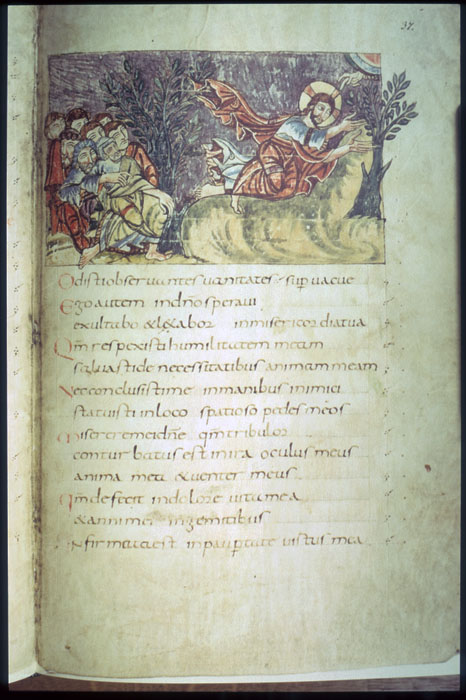 37.
Odisti obseruantes uanitates · sup uacue
Ego autem indño speraui
exultabo & lętabor inmisericordia tua
Qm̄ respexisti humilitatem meam
saluasti de necessitatibus animam meam
Nec conclusisti me inmanibus inimici
statuisti inloco spatioso pedes meos
Miserere mei dñe qm̄ tribulor
conturbatus est inira oculus meus
anima mea & uenter meus
Qm̄ defecit indolore uita mea
& anni mei ingemitibus
Infirmata est inpaup̱tate uirtus mea